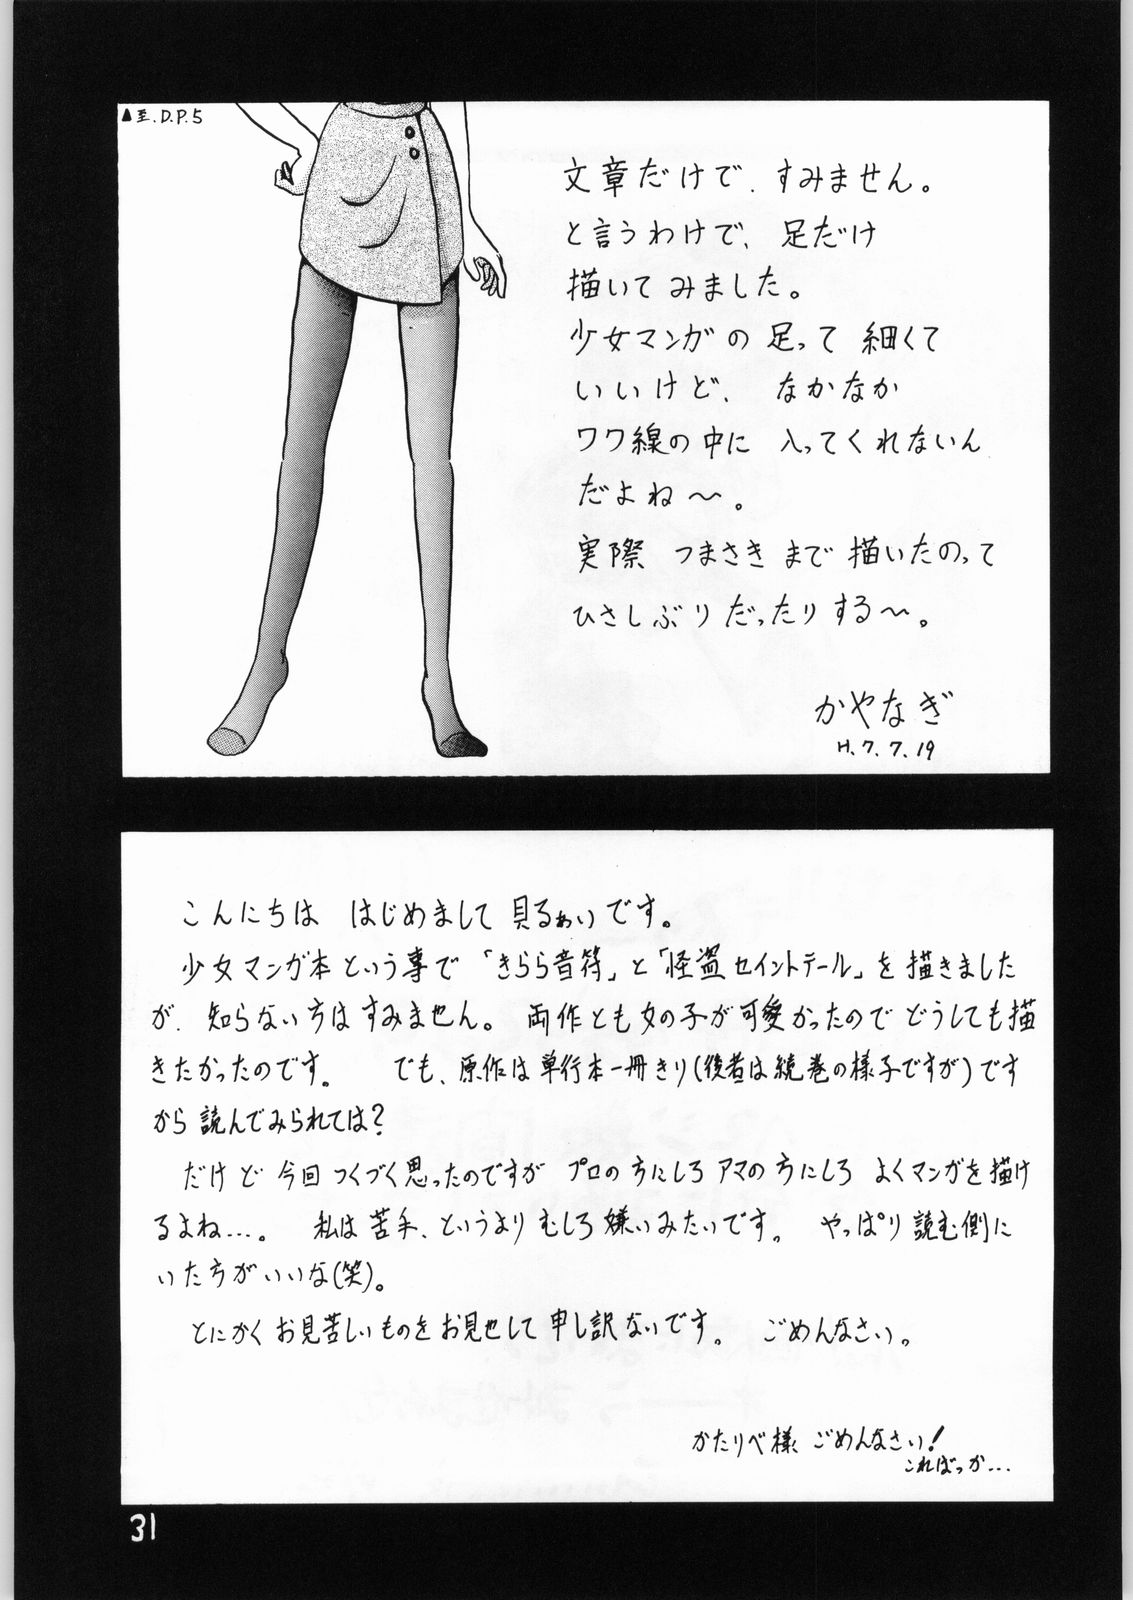 ▲至.D.P.5
文章だけで、すみません。
と言うわけで、足だけ
描いてみました。
少女マンガの足って細くて
いいけど、なかなか
ワク線の中に入ってくれないん
だよね〜。
実際つまさきまで描いたのって
ひさしぶりだったりする〜。
かやなぎ
H.7.7.19
こんにちは はじめまして 貝るぁぃです。
少女マンガ本という事で「きらら音符」と「怪盗セイントテール」を描きました
が、知らない方はすみません。両作とも女の子が可愛かったのでどうしても描
きたかったのです。 でも、原作は単行本一冊きり(後者は続巻の様子ですが)です
から読んでみられては?
だけど今回つくづく思ったのですがプロの方にしろアマの方にしろよくマンガを描け
るよね…。 私は苦手、というよりむしろ嫌いみたいです。 やっぱり読む側に
いた方がいいな(笑)。
とにかくお見苦しいものをお見せして申し訳ないです。 ごめんなさい。
かたりべ様 ごめんなさい!
こればっか…
31